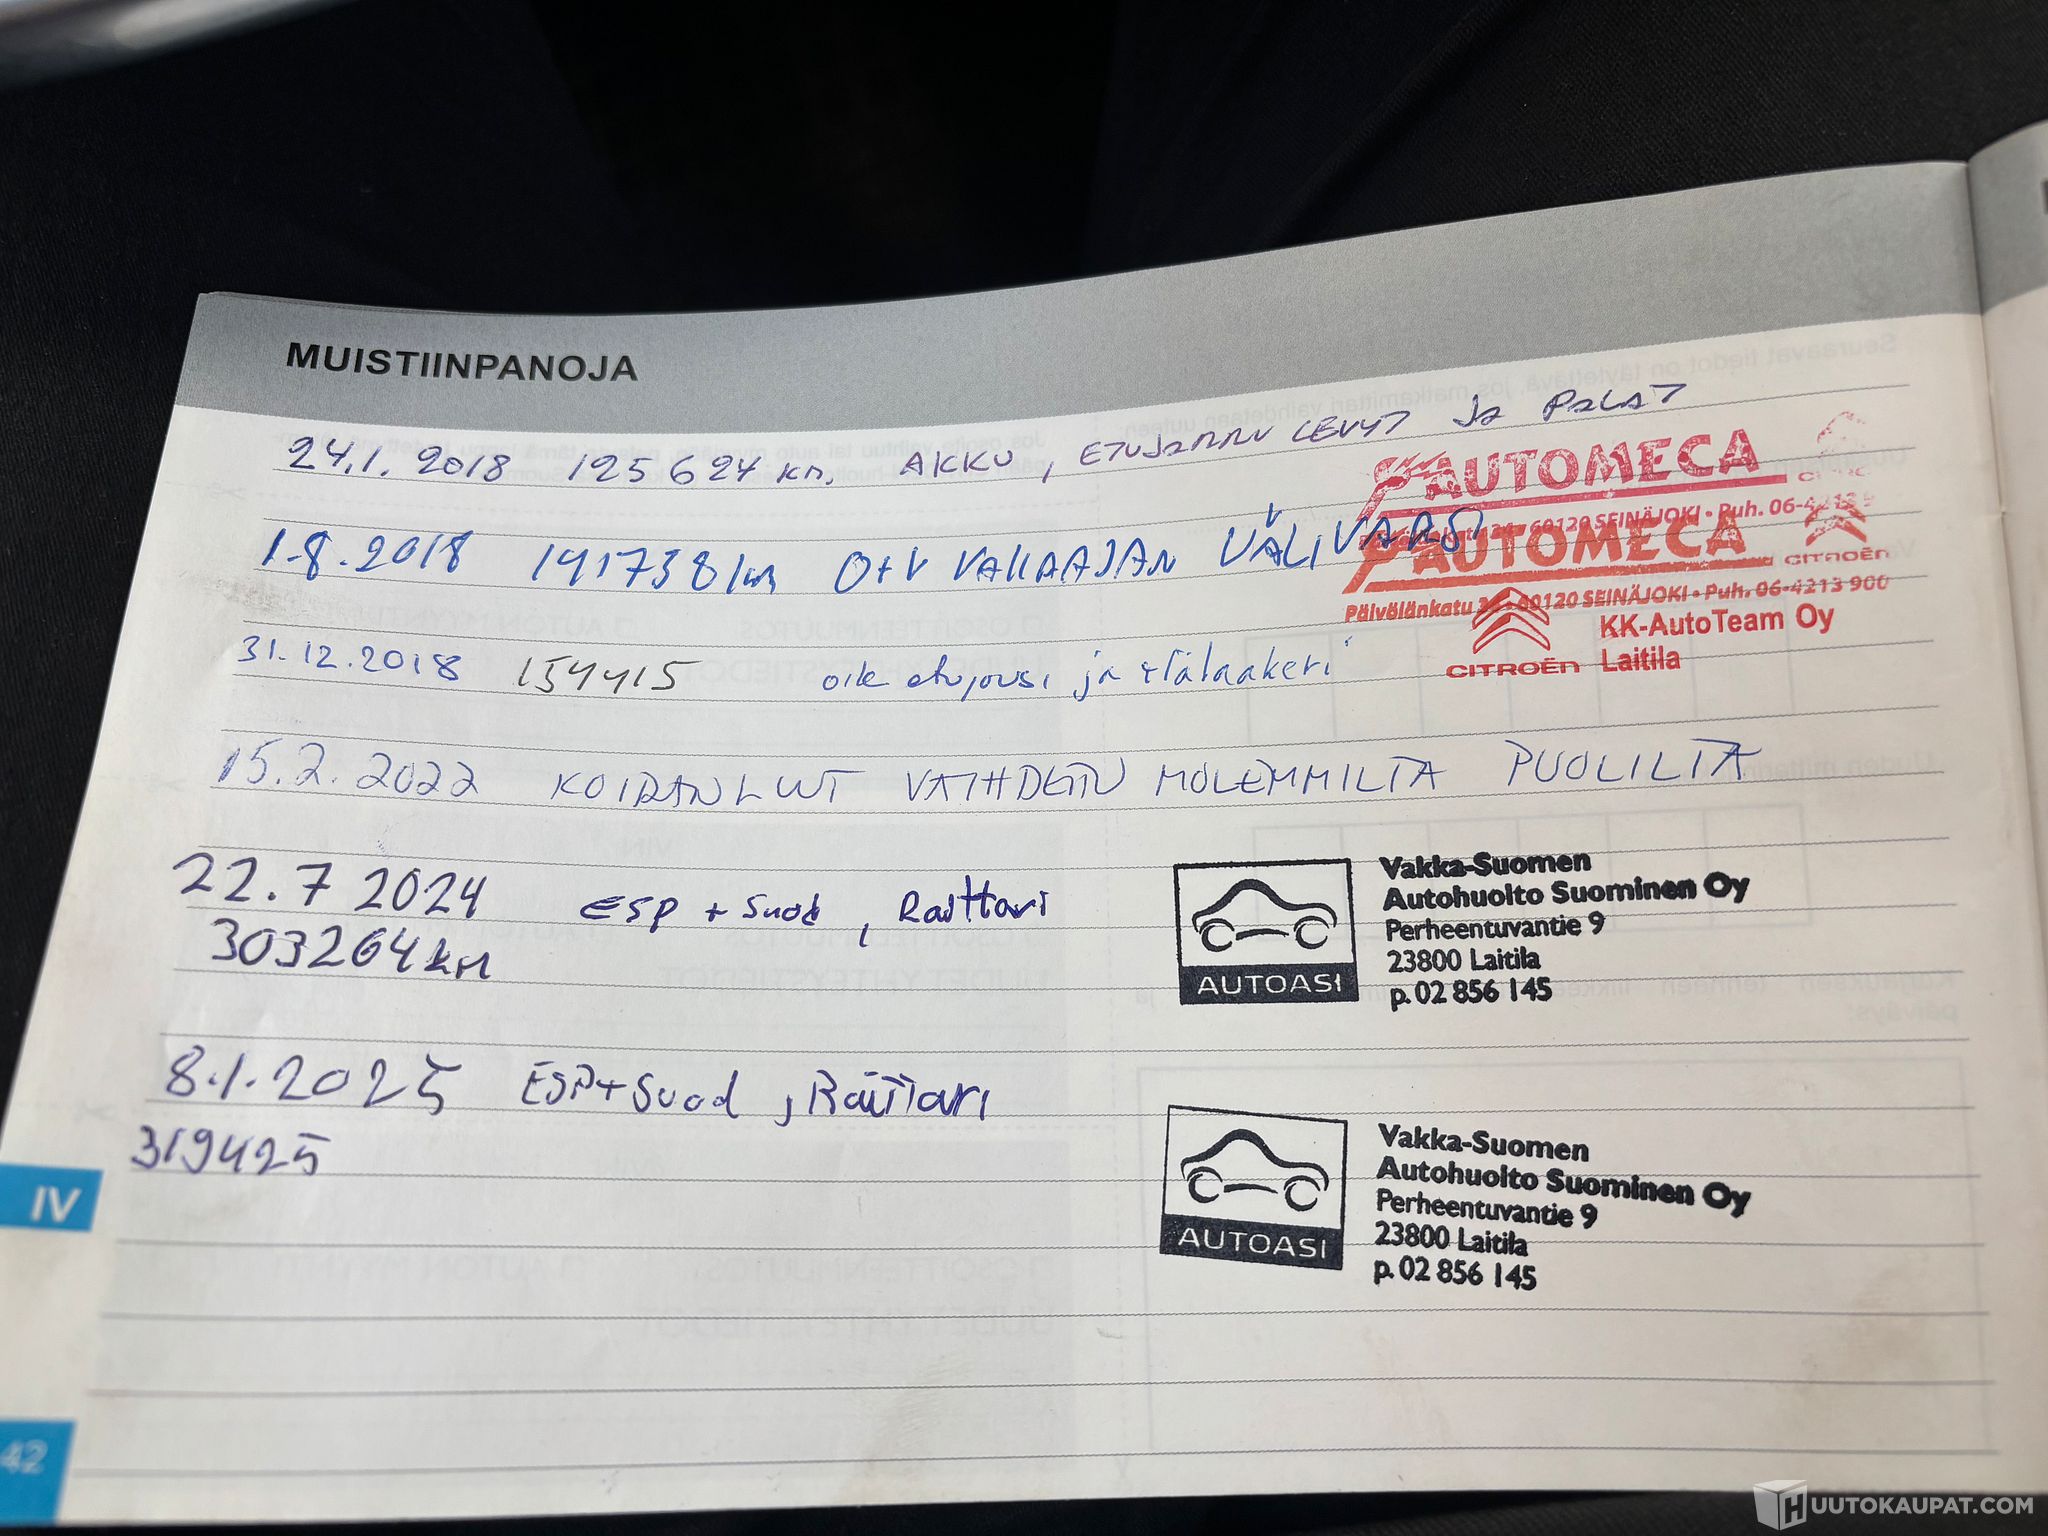 MUISTIINPANOJA
24.1. 2018 125624 km. AKKU, ETUJARRU LEVYT JA PALAT
AUTOMECA
60120 SEINÄJOKI • Puh. 06-4213 9
1.8.2018 141738 km O+V VAKAAJAN VÄLIVARSI
AUTOMECA
CITROËN
Päivölänkatu 34 • 60120 SEINÄJOKI • Puh. 06-4213 900
31.12.2018 154415 oik etujousi ja ylälaakeri
CITROËN
KK-AutoTeam Oy
Laitila
15.2.2022 KOIRANLUUT VAIHDETTU MOLEMMILTA PUOLILTA
22.7 2024 ESP + Suod, Raittari
303264 km
AUTOASI
Vakka-Suomen
Autohuolto Suominen Oy
Perheentuvantie 9
23800 Laitila
p. 02 856 145
8.1.2025 ESP+Suod, Raittari
319425
AUTOASI
Vakka-Suomen
Autohuolto Suominen Oy
Perheentuvantie 9
23800 Laitila
p. 02 856 145
IV
42
HUUTOKAUPAT.COM